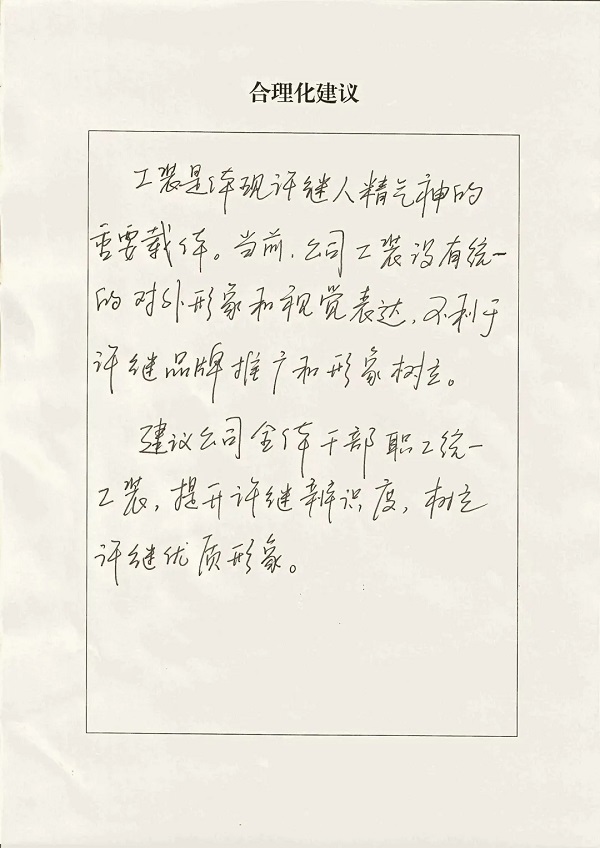 合理化建议
工装是体现许继人精气神的
重要载体。当前，公司工装没有统一
的对外形象和视觉表达，不利于
许继品牌推广和形象树立。
建议公司全体干部职工统一
工装，提升许继辨识度，树立
许继优质形象。